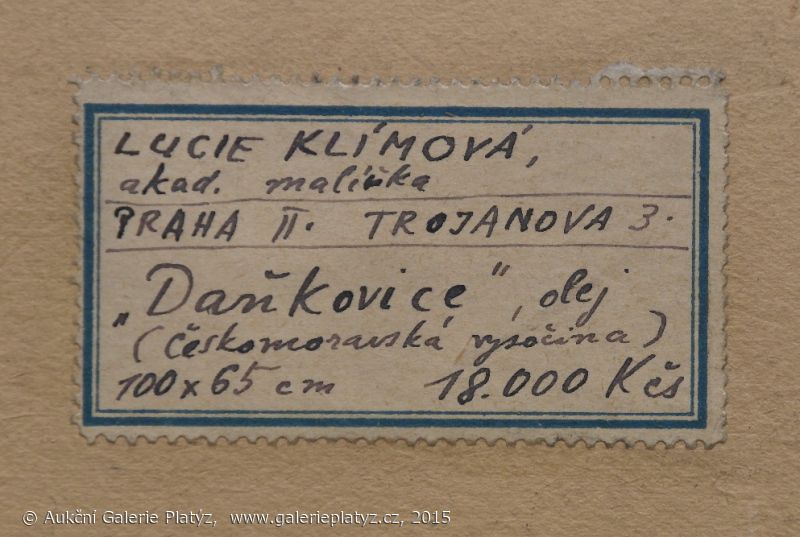 LUCIE KLÍMOVÁ,
akad. malířka
PRAHA II. TROJANOVA 3.
„Daňkovice", olej
(Českomoravská vysočina)
100 x 65 cm 18.000 Kčs
© Aukční Galerie Platýz, www.galerieplatyz.cz, 2015